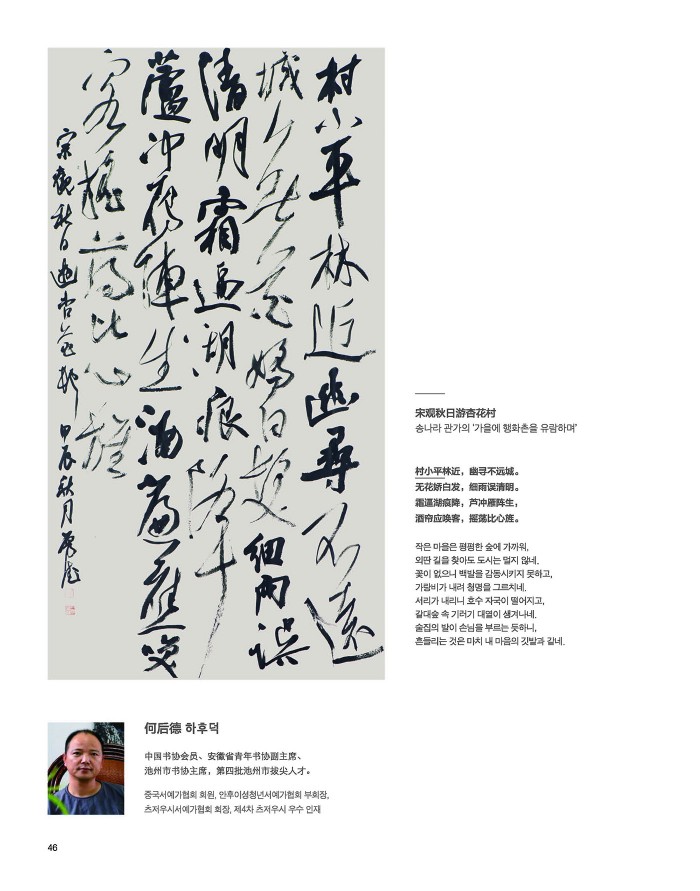 村小平林近幽尋不遠
城無花嬌白髮細雨誤
清明霜逼湖痕降
蘆沖雁陣生酒簾應喚
客搖蕩比心旌
宋觀秋日遊杏花邨 甲辰秋月 后德
宋观秋日游杏花村
송나라 관가의 '가을에 행화촌을 유람하며'
村小平林近，幽寻不远城。
无花娇白发，细雨误清明。
霜逼湖痕降，芦冲雁阵生，
酒帘应唤客，摇荡比心旌。
작은 마을은 평평한 숲에 가까워,
외딴 길을 찾아도 도시는 멀지 않네.
꽃이 없으니 백발을 감동시키지 못하고,
가랑비가 내려 청명을 그르치네.
서리가 내리니 호수 자국이 떨어지고,
갈대숲 속 기러기 대열이 생겨나네.
술집의 발이 손님을 부르는 듯하니,
흔들리는 것은 마치 내 마음의 깃발과 같네.
何后德 하후덕
中国书协会员、安徽省青年书协副主席、
池州市书协主席，第四批池州市拔尖人才。
중국서예가협회 회원, 안후이성청년서예가협회 부회장,
츠저우시서예가협회 회장, 제4차 츠저우시 우수 인재
46